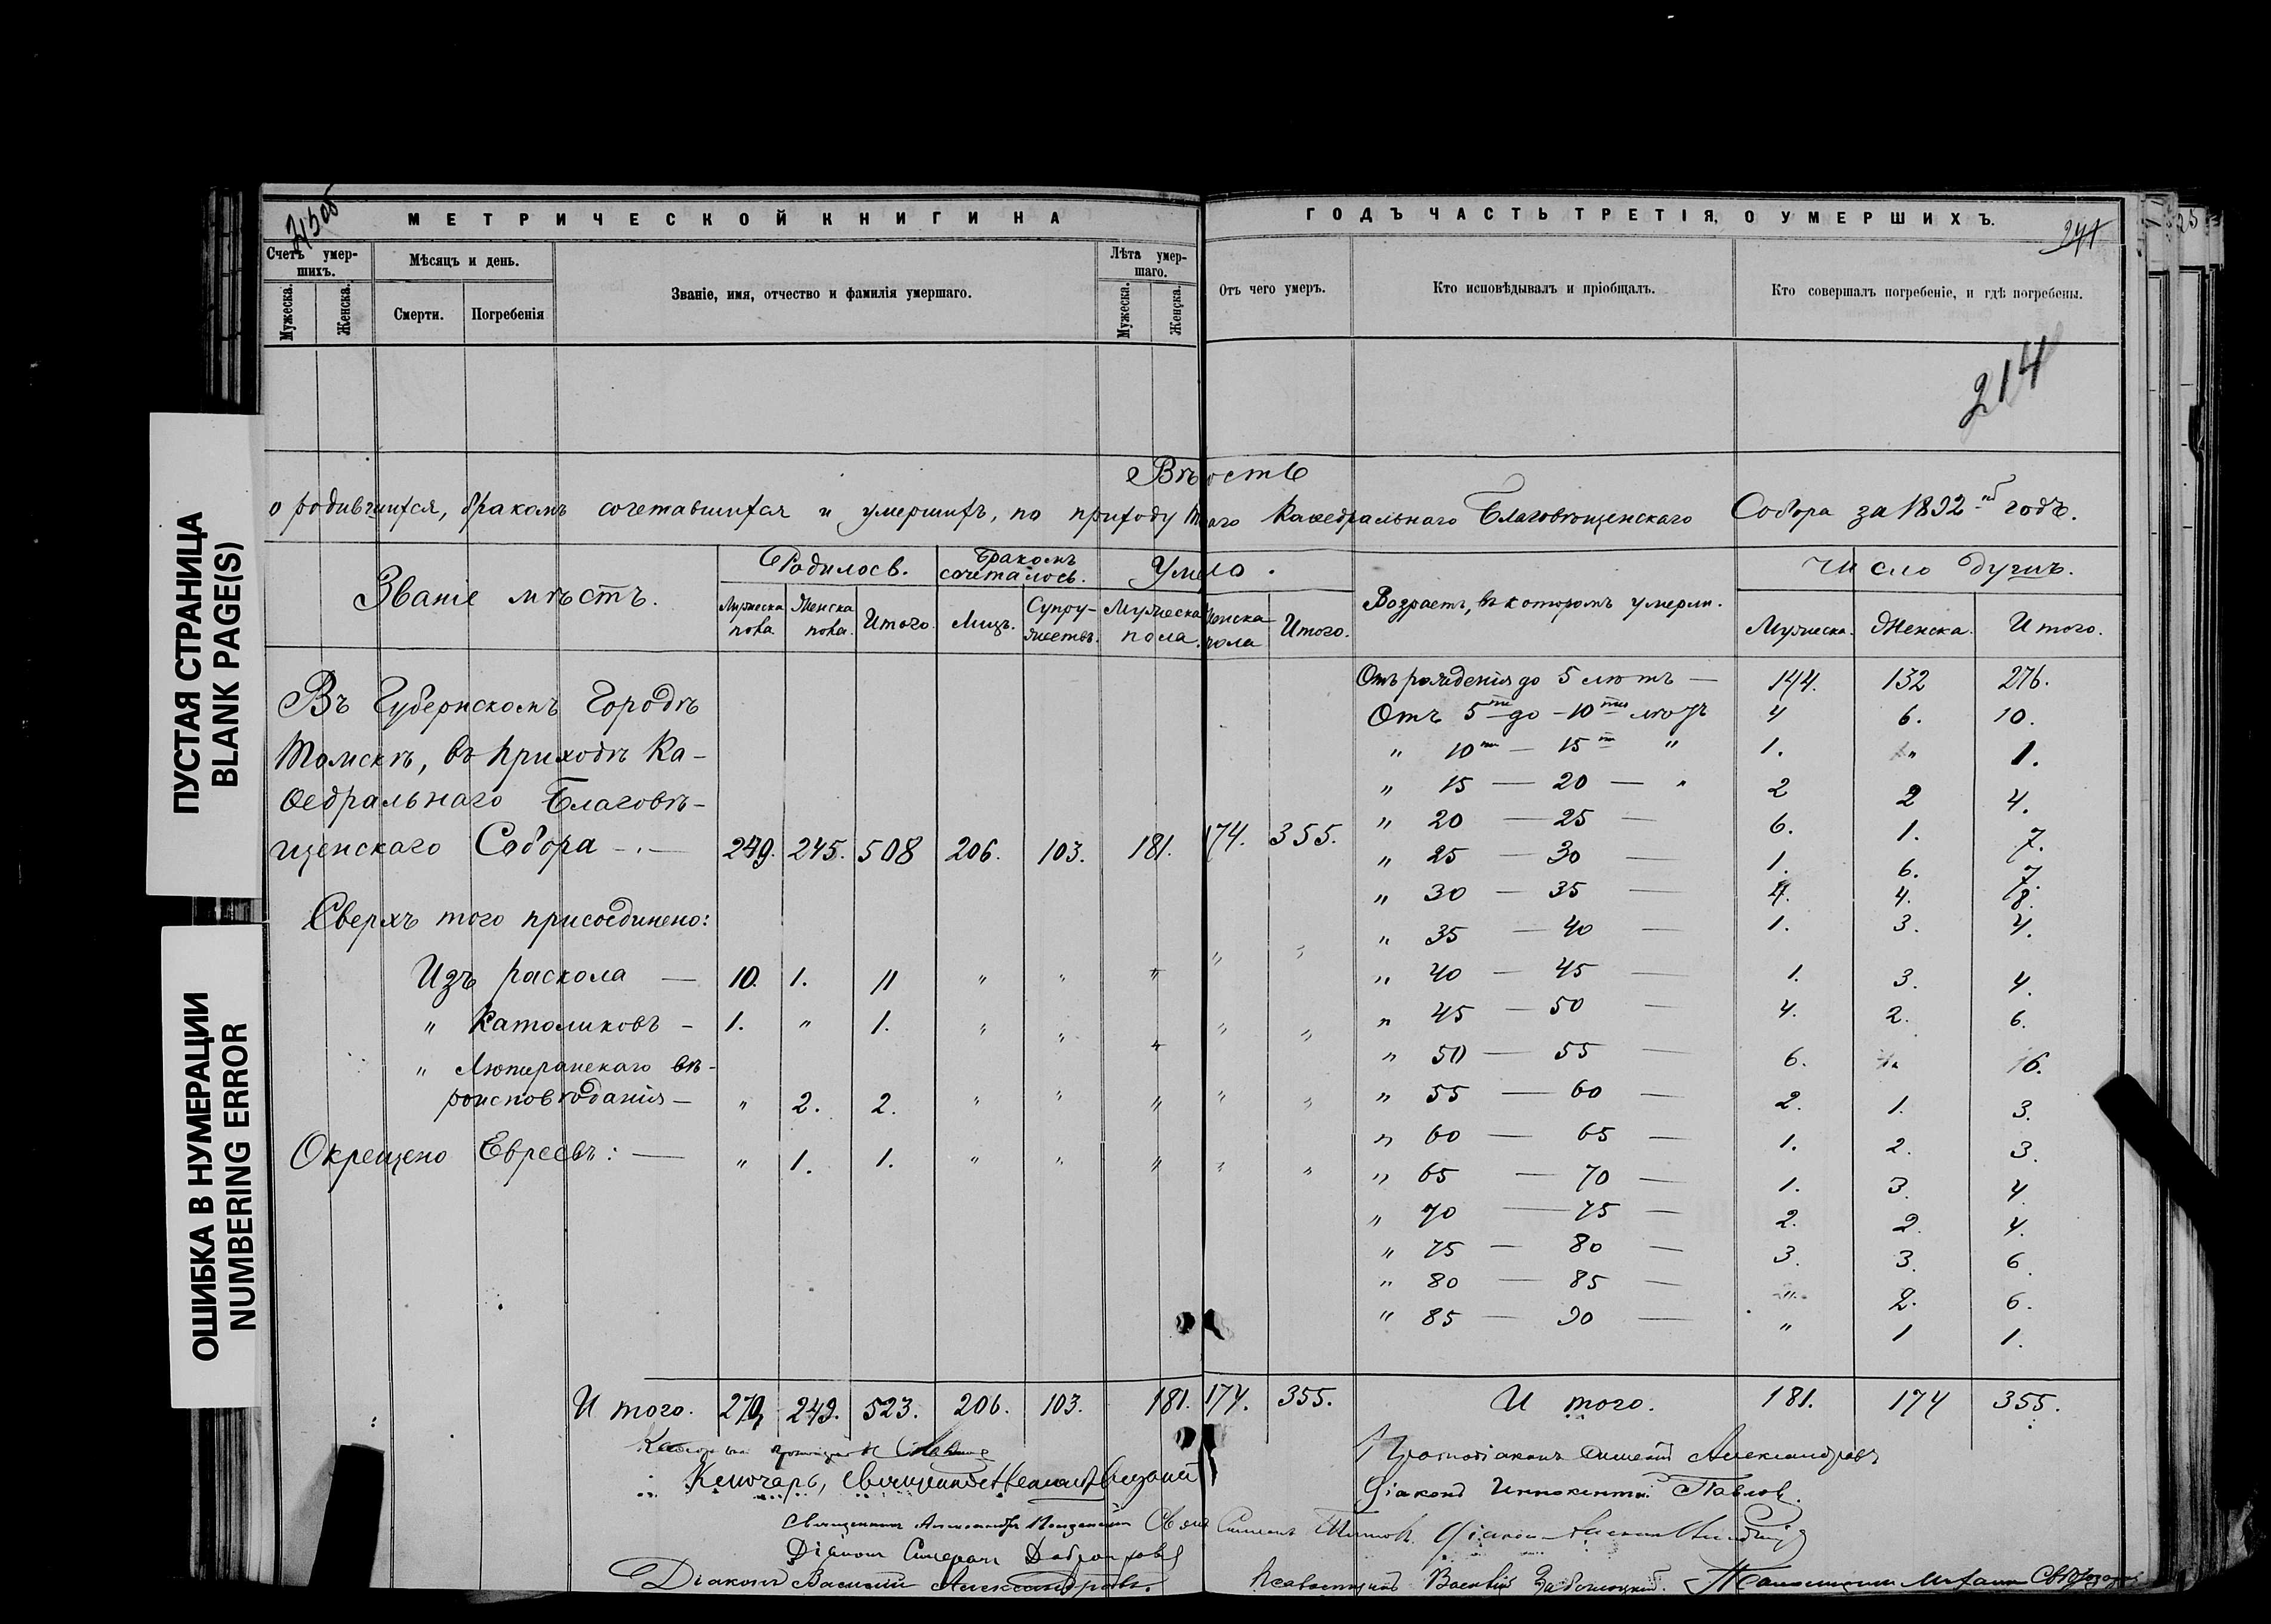 ПУСТАЯ СТРАНИЦА
BLANK PAGE(S)
ОШИБКА В НУМЕРАЦИИ
NUMBERING ERROR
МЕТРИЧЕСКОЙ КНИГИ НА ГОДЪ ЧАСТЬ ТРЕТІЯ, О УМЕРШИХЪ.
Счетъ умершихъ. Мѣсяцъ и день. Званіе, имя, отчество и фамилія умершаго. Лѣта умершаго. Отъ чего умеръ. Кто исповѣдывалъ и пріобщалъ. Кто совершалъ погребеніе, и гдѣ погребены.
Мужеска. Женска. Смерти. Погребенія Мужеска. Женска.
214
Вѣдость
о родившихся, бракомъ сочетавшихся и умершихъ, по приходу Каѳедральнаго Благовѣщенскаго Собора за 1892 годъ.
Званіе мѣстъ. Родилось. Бракомъ сочеталось. Умерло. Возрастъ, въ которомъ умерли. Число душъ.
Мужеска пола Женска пола. Итого. Лицъ. Супружествъ. Мужеска пола. Женска пола Итого. Мужеска. Женска. Итого.
Въ Губернскомъ Городѣ
Томскѣ, въ приходѣ Ка-
ѳедральнаго Благовѣ-
щенскаго Собора 245. 508 206. 103. 181. 174. 355.
Сверхъ того присоединено:
Изъ раскола — 10. 1. 11 " " " " "
" Католиковъ - 1. " 1. " " " " "
" Лютеранскаго вѣ-
роисповѣданія — " 2. 2. " " " " "
Окрещено Евреевъ: — " 1. 1. " " " " "
Итого. 249. 523. 206. 103. 181. 174. 355.
Отъ рожденія до 5 лѣтъ — 144. 132 276.
Отъ 5 до 10 лѣтъ 4 6. 10.
" 10 — 15 " 1. " 1.
" 15 — 20 — " 2 2 4.
" 20 — 25 — 6. 1. 7.
" 25 — 30 — 1. 6. 7.
" 30 — 35 — 4. 4. 8.
" 35 — 40 — 1. 3. 4.
" 40 — 45 — 1. 3. 4.
" 45 — 50 — 4. 2. 6.
" 50 — 55 — 6. " 6.
" 55 — 60 — 2. 1. 3.
" 60 — 65 — 1. 2. 3.
" 65 — 70 — 1. 3. 4.
" 70 — 75 — 2. 2. 4.
" 75 — 80 — 3. 3. 6.
" 80 — 85 — " 2. 6.
" 85 — 90 — " 1 1.
Итого. 181. 174 355.
Ключарь, Священникъ
Священникъ Александръ
Діаконъ
Діаконъ Василій Александровъ.
Протодіаконъ Александровъ
Діаконъ Иннокентій Павловъ.
Діаконъ
Псаломщикъ Василій Заболоцкій.